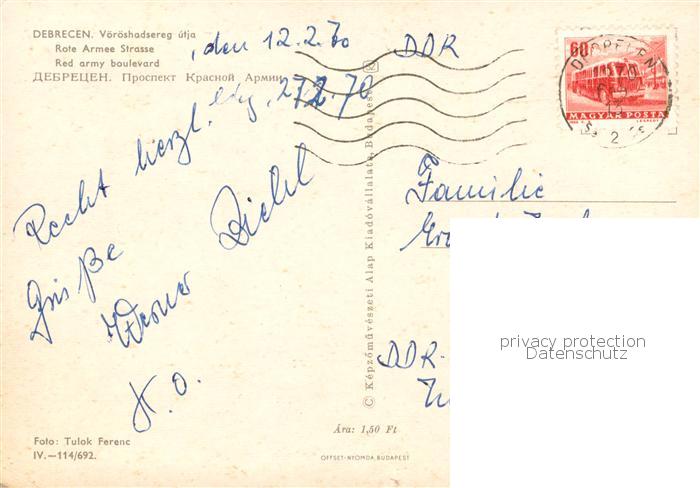 DEBRECEN. Vöröshadsereg útja
Rote Armee Strasse
Red army boulevard
ДЕБРЕЦЕН. Проспект Красной Армии
, den 12.2.70
27.2.70
Recht herzl.
Grüße
Werner Diehl
DDR
60
DEBRECEN
2
MAGYAR POSTA
Familie
DDR-
privacy protection
Datenschutz
© Képzőművészeti Alap Kiadóvállalata, Budapest
Foto: Tulok Ferenc
IV.—114/692.
Ára: 1,50 Ft
OFFSET-NYOMDA, BUDAPEST